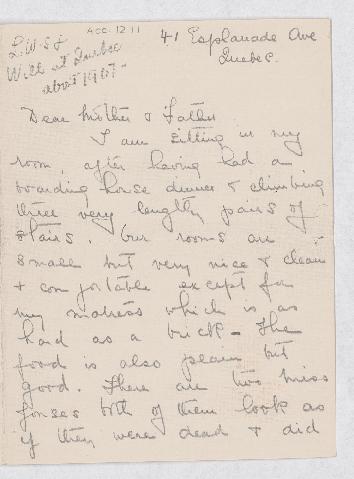 ACC. 1211
L.W.S J
Will at Quebec
about 1907 -
41 Esplanade Ave
Quebec.
Dear Mother & Father
I am sitting in my
room, after having had a
boarding house dinner & climbing
three very lengthy pairs of
stairs. Our rooms are
small but very nice & clean
+ comfortable except for
my matress which is as
hard as a brick - The
food is also plain but
good. There are two Miss
Jonses both of them look as
if they were dead & did